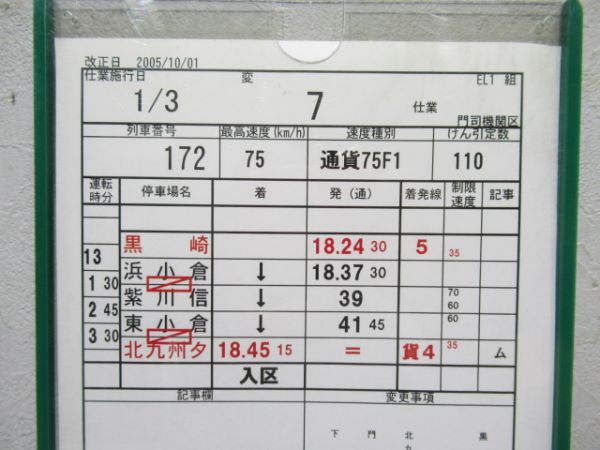 改正日 2005/10/01
仕業施行日 変 EL1 組
1/3 7 仕業 門司機関区
列車番号 最高速度(km/h) 速度種別 けん引定数
172 75 通貨75F1 110
運転時分 停車場名 着 発(通) 着発線 制限速度 記事
黒崎 18.24 30 5 35
13
浜小倉 ↓ 18.37 30
1 30
紫川信 ↓ 39 70
2 45 60
東小倉 ↓ 41 45 60
3 30
北九州タ 18.45 15 = 貨4 35 ム
入区
記事欄 変更事項
下 門 北 黒
九